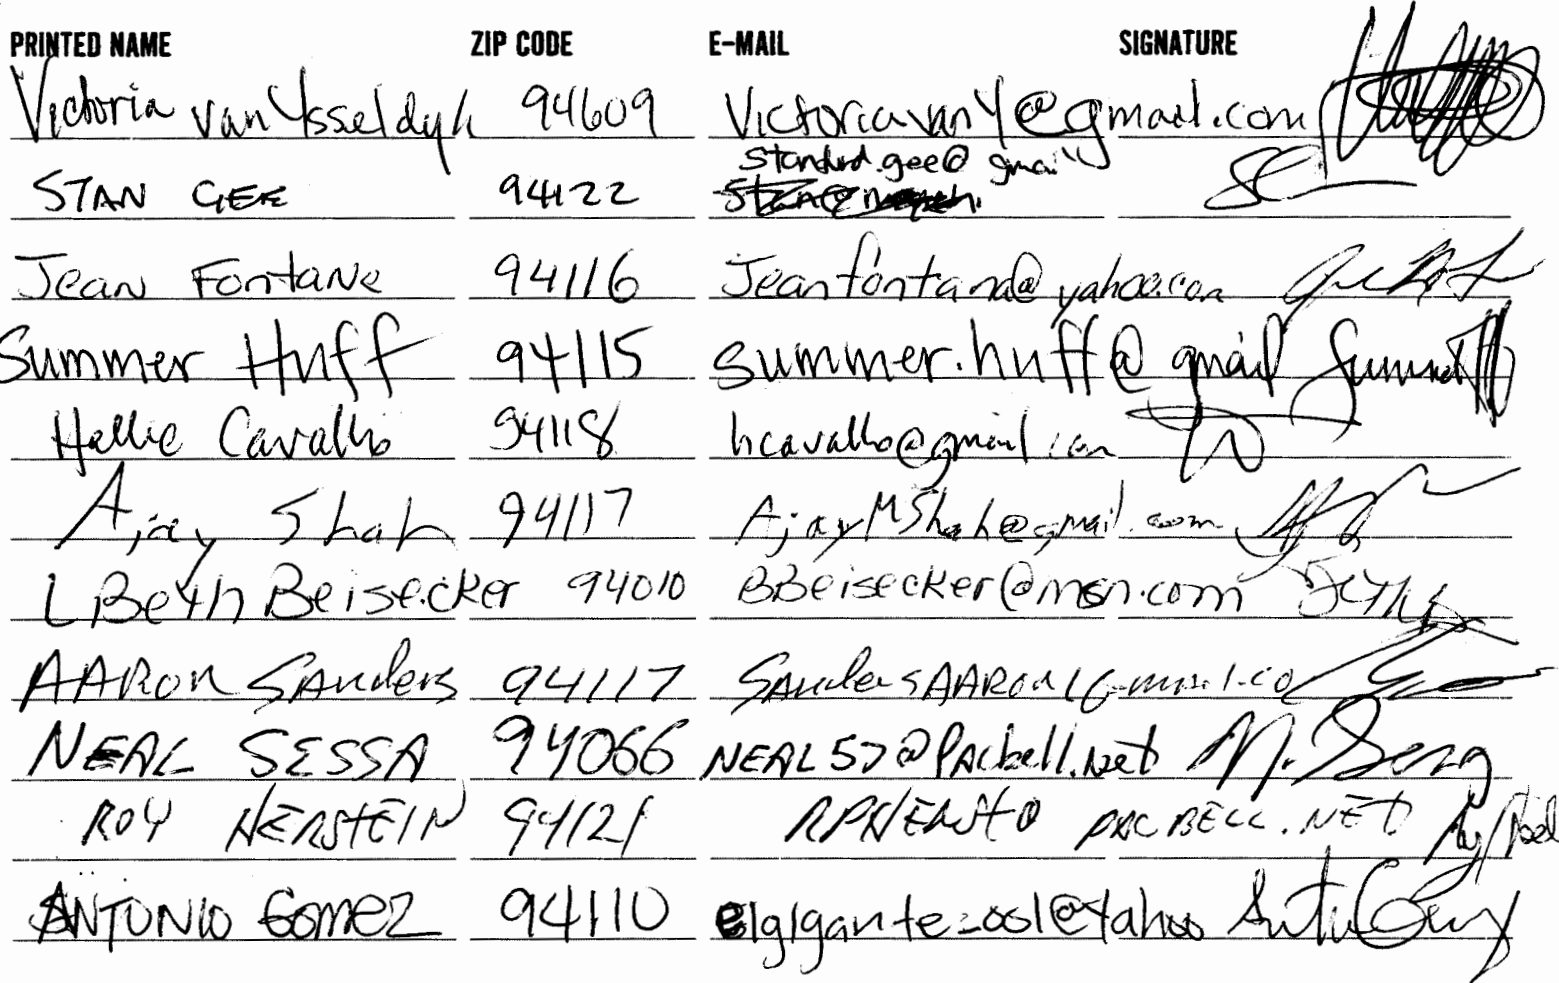 PRINTED NAME ZIP CODE E-MAIL SIGNATURE
Victoria van Ysseldyk 94609 Victoriavany@gmail.com
Standard.gee@gmail
STAN GEE 94122
Jean Fontane 94116 Jeanfontana@yahoo.com
Summer Huff 94115 summer.huff@gmail
Hallie Cavalho 94118 hcavalho@gmail.com
Ajay Shah 94117 AjayMShah@gmail.com
L Beth Beisecker 94010 BBeisecker@msn.com
AARON SAnders 94117
NEAL SESSA 94066 NEAL57@PAcbell.net
ROY HERSTEIN 94121 PACBELL.NET
ANTONIO Gomez 94110 elgigante2001@yahoo